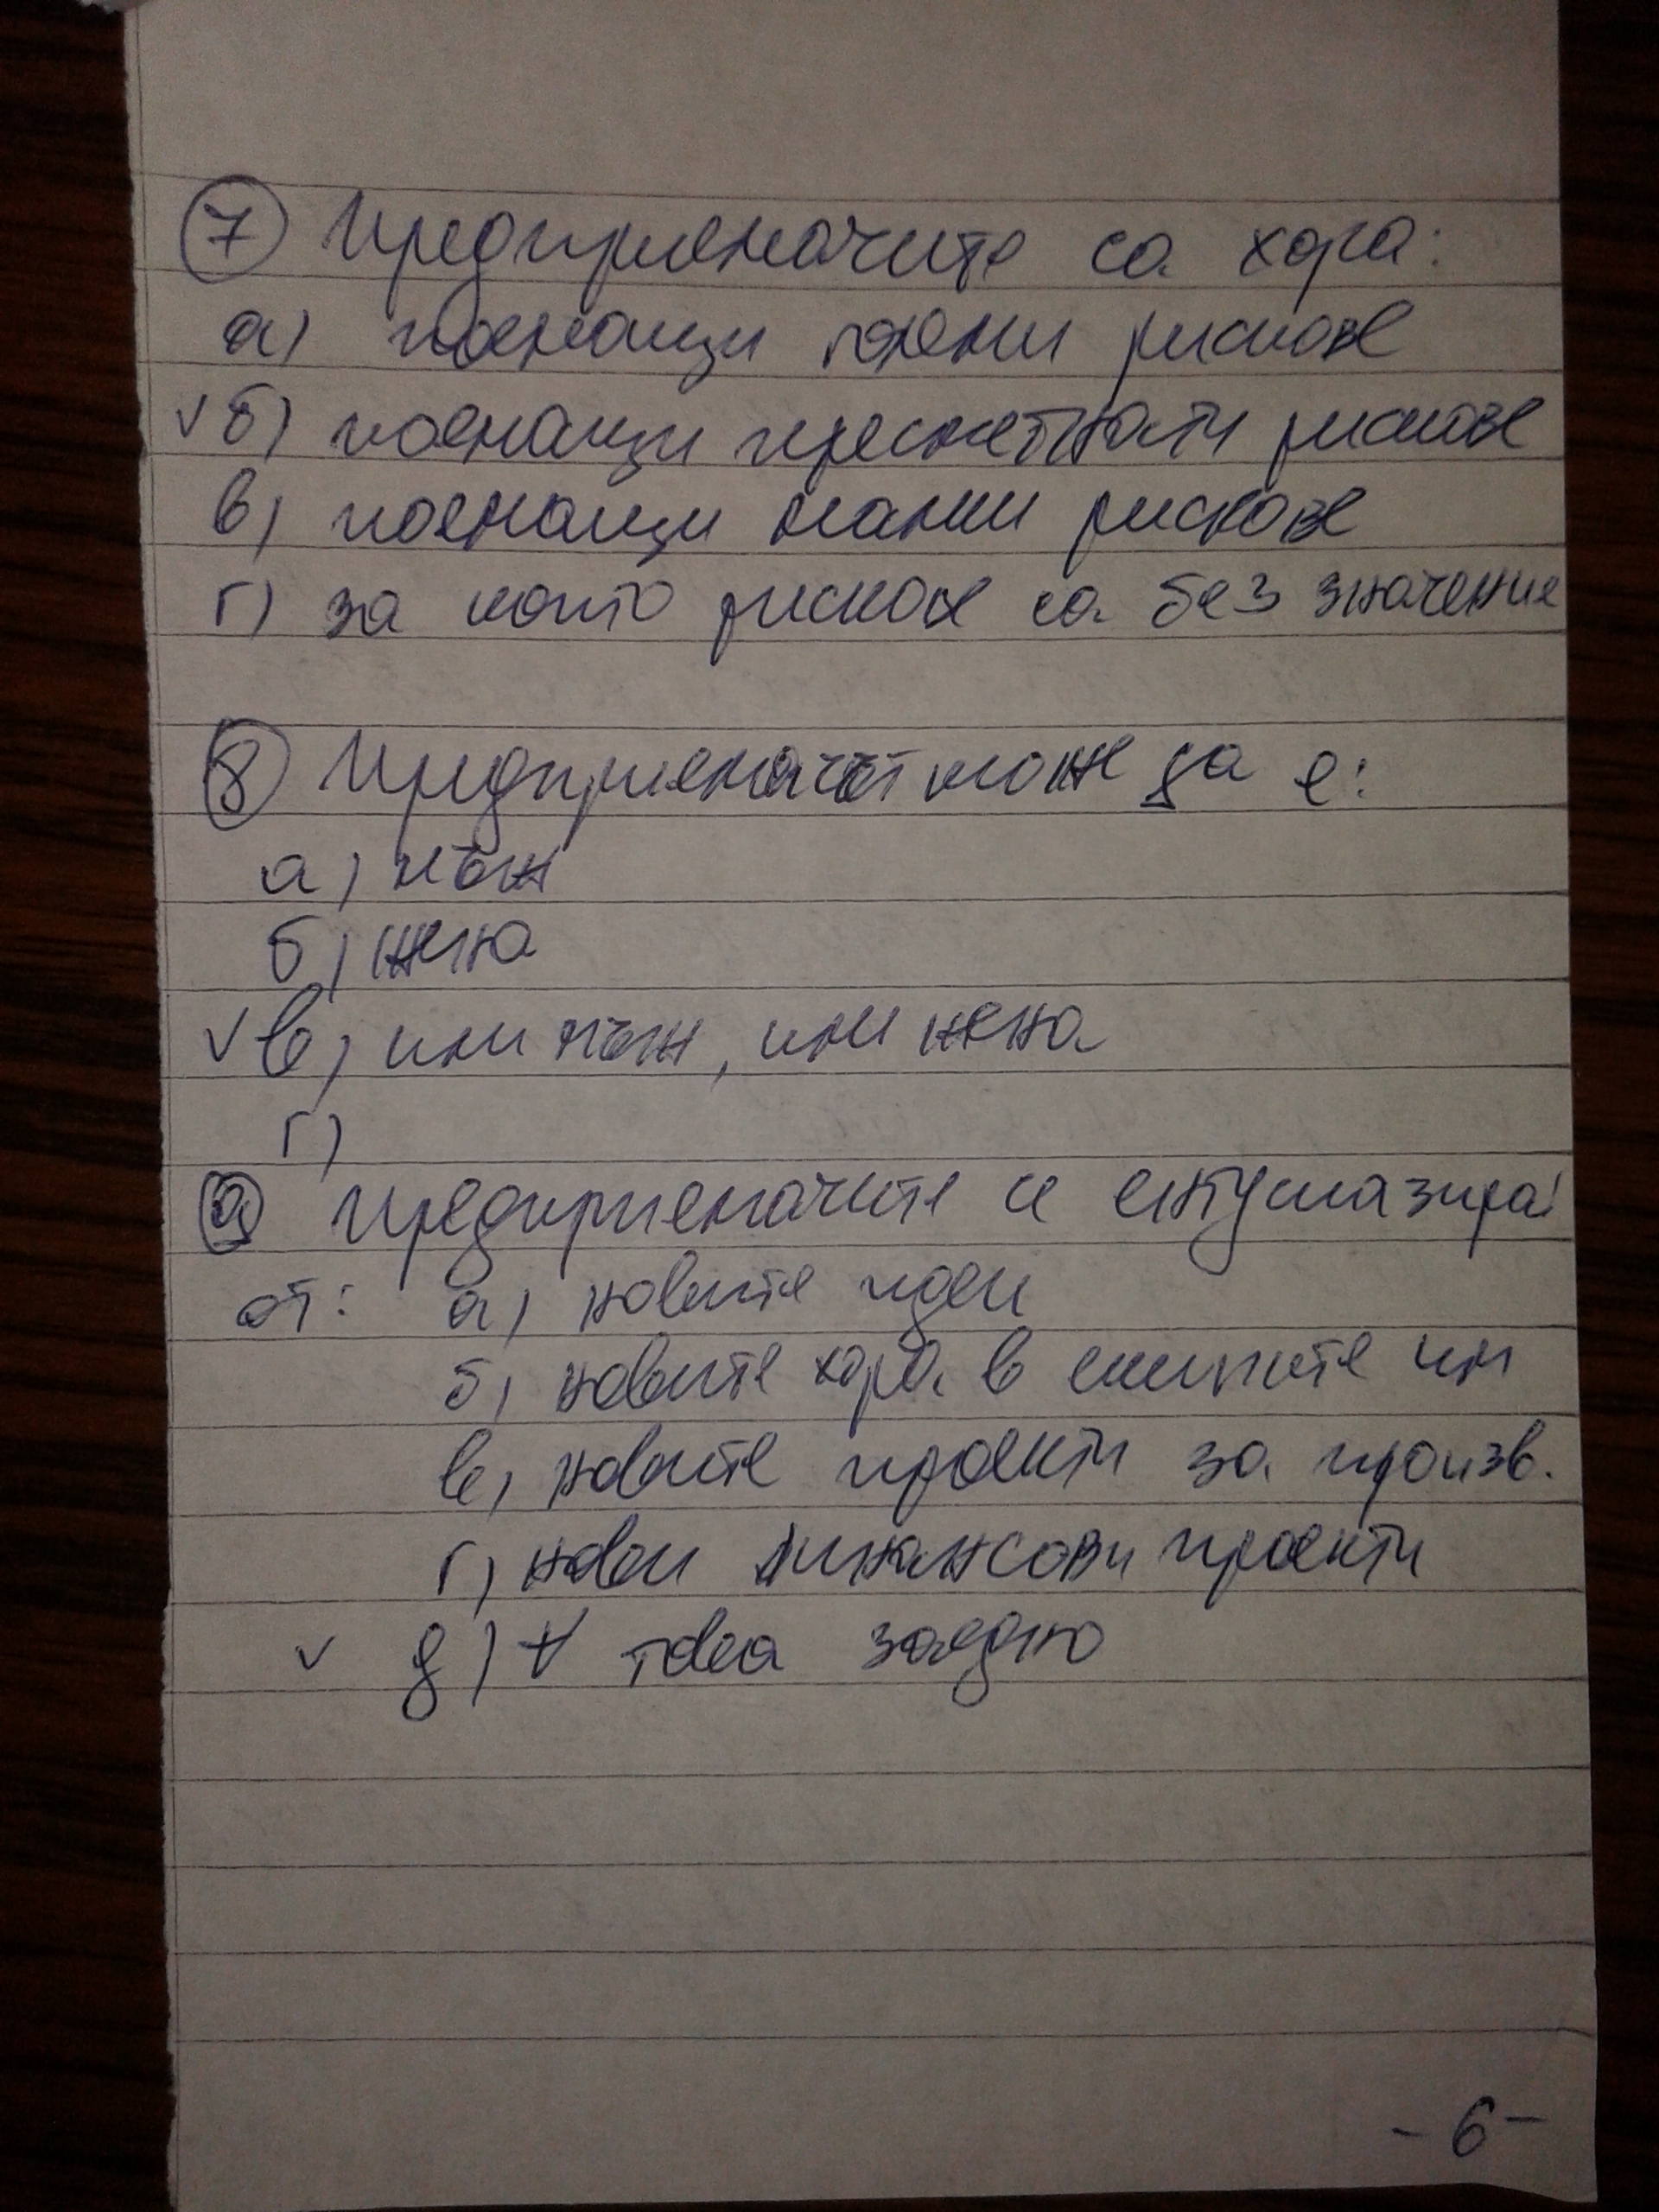 7 Предприемачите са хора:
а) поемащи големи рискове
✓ б) поемащи пресметнати рискове
в) поемащи малки рискове
г) за които рискове са без значение
8 Предприемачът може да е:
а) мъж
б) жена
✓ в) или мъж, или жена
г)
9 Предприемачите се ентусиазират
от: а) новите идеи
б) новите хора в екипите им
в) новите проекти за произв.
г) нови финансови проекти
✓ д) ∀ това заедно
- 6 -